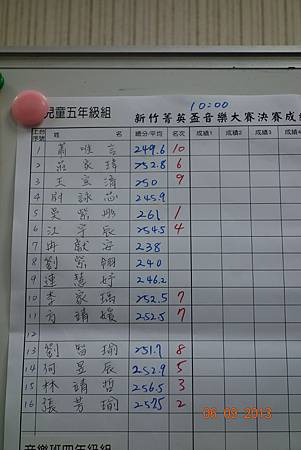 10:00
兒童五年級組 新竹菁英盃音樂大賽決賽成
上台序號 姓 名 總分/平均 名次 成績1 成績2 成績3 成績4
1 蕭唯言 249.6 10
2 莊家瑋 252.8 6
3 王宣清 250 9
4 詠芯 245.9
5 吳紫 261 1
6 江宇辰 254.5 4
7 冉獻安 238
8 劉紫翎 240
9 連慧妤 246.2
10 李家瑀 252.5 7
11 方靖媛 252.5 7
12
13 劉瑜 251.7 8
14 何昱辰 252.9 5
15 林靖哲 256.5 3
16 張芳瑜 257.5 2
音樂班四年級組
06.09.2013